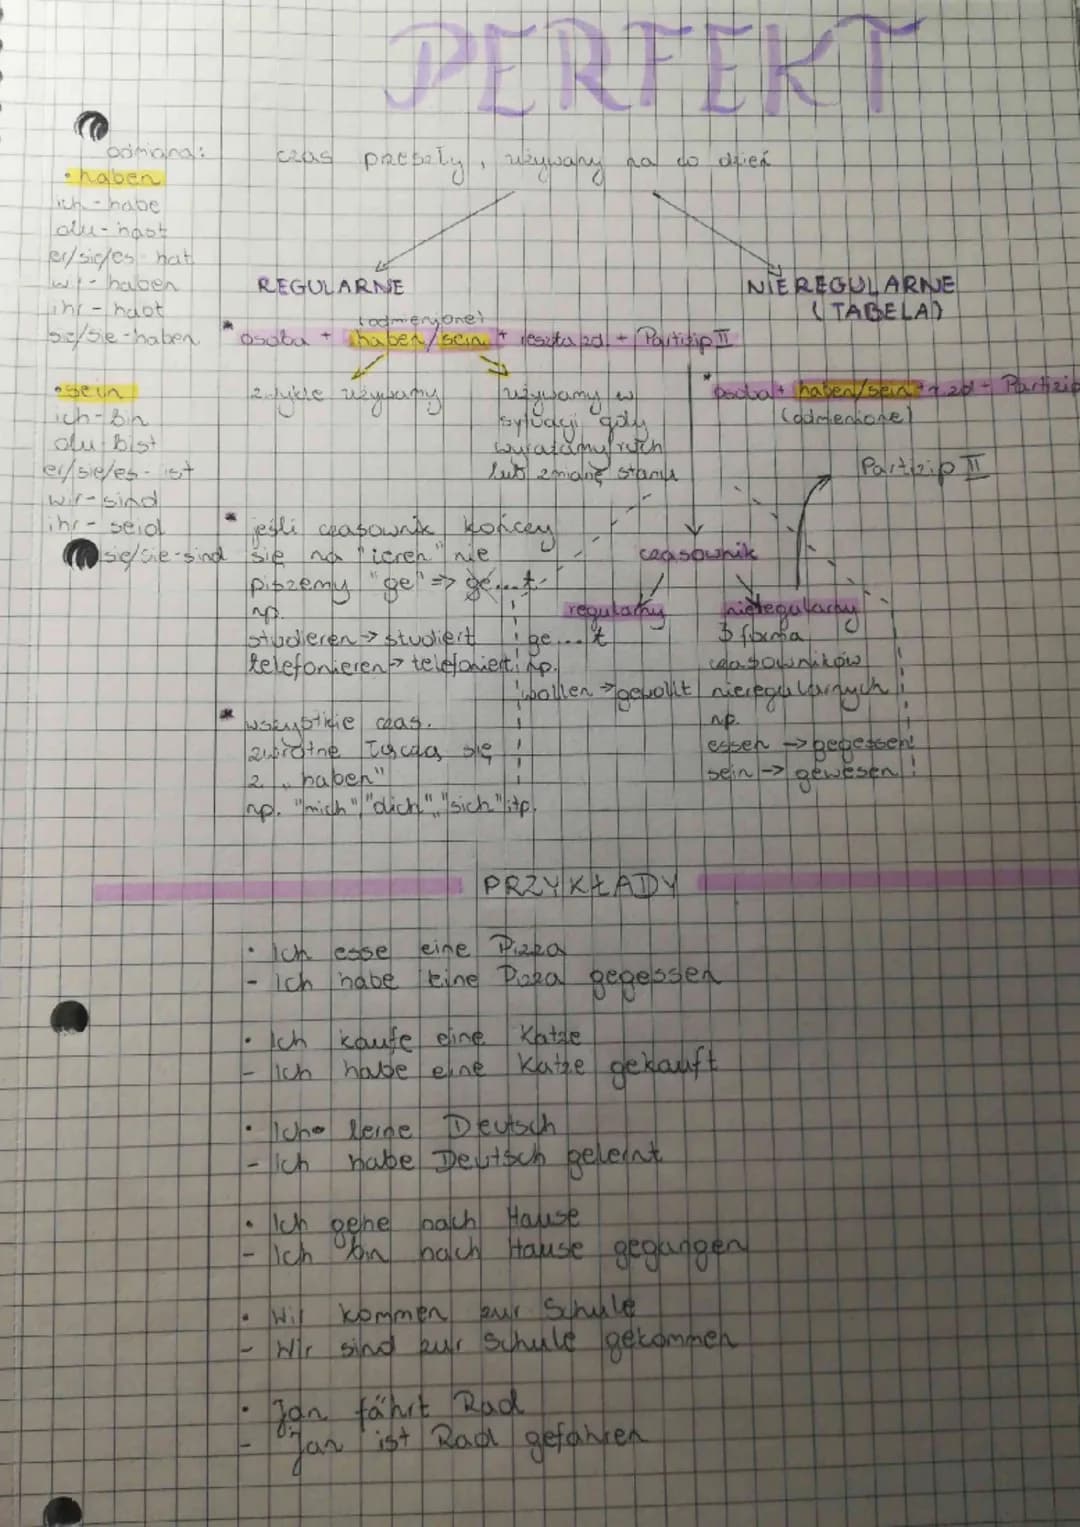 PERFEKT
czas przeszły, używany na co dzień
odmiana:
• haben
ich - habe
du - hast
er/sie/es hat
wir - haben
ihr - habt
sie/Sie - haben
• sein
ich - bin
du bist
er/sie/es - ist
wir - sind
ihr - seid
sie/Sie - sind
REGULARNE
(odmienione)
* osoba + haben/sein + reszta zd. + Partizip II
zwykle używamy
używamy w
sytuacji gdy
wyrażamy ruch
lub zmianę stanu
NIEREGULARNE
(TABELA)
* osoba + haben/sein + r. zd + Partizip
(odmienione)
Partizip II
czasownik
regularny
ge...t
np.
wollen → gewollt
nieregularny
3 forma
czasowników
nieregularnych
np.
essen → gegessen!
sein → gewesen!
* jeśli czasownik kończy
się na "ieren" nie
piszemy "ge" => ge...t
np.
studieren → studiert
telefonieren → telefoniert
* wszystkie czas.
zwrotne łączą się
z „haben"
np. "mich", "dich", "sich" itp.
PRZYKŁADY
• Ich esse eine Pizza
- Ich habe eine Pizza gegessen
• Ich kaufe eine Katze
- Ich habe eine Katze gekauft
• Ich lerne Deutsch
- Ich habe Deutsch gelernt
• Ich gehe nach Hause
- Ich bin nach Hause gegangen
• Wir kommen zur Schule
- Wir sind zur Schule gekommen
• Jan fährt Rad
- Jan ist Rad gefahren